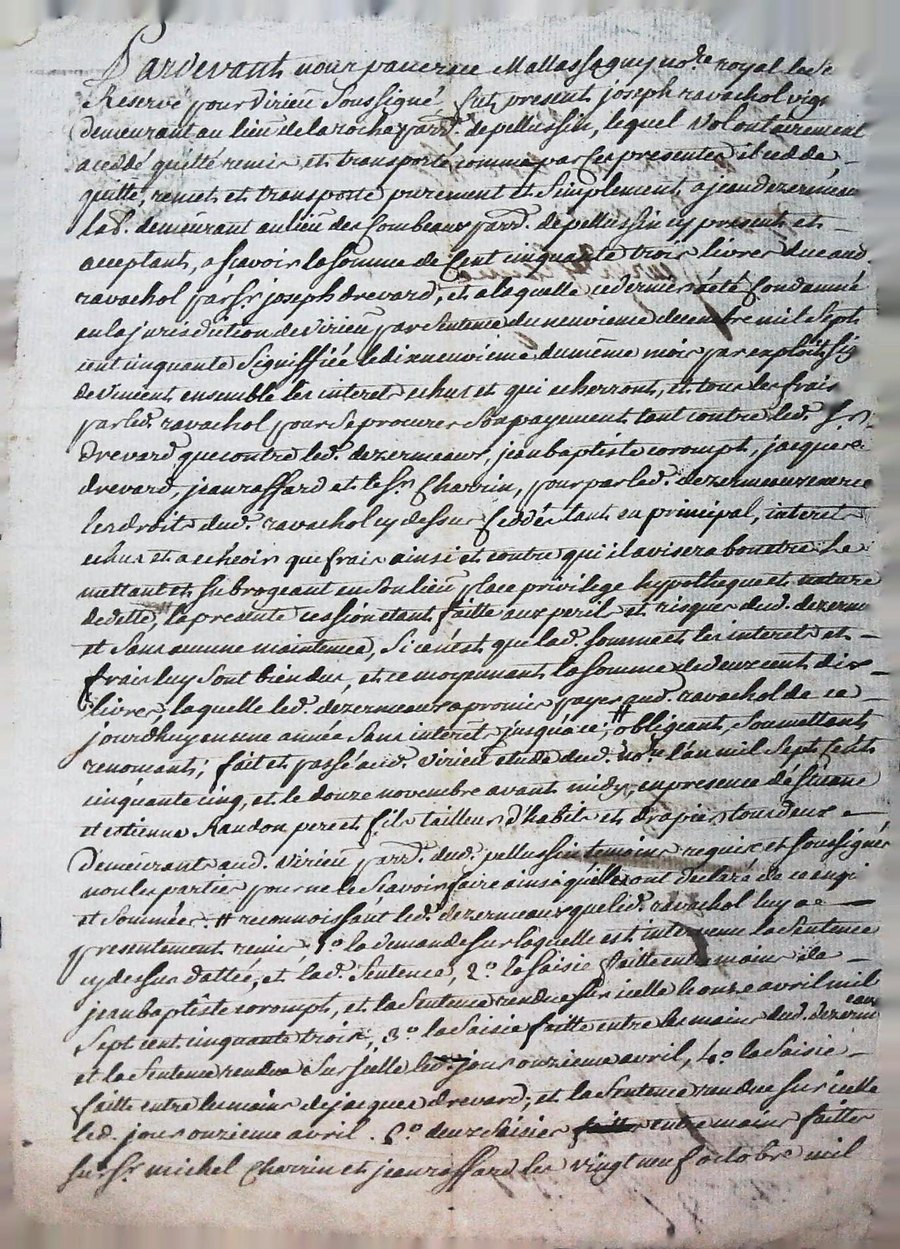 Pardevant nous pancrace Mallassagny no.re royal
Reservé pour Virieu soussigné, fut present joseph ravachol vig.
demeurant au lieu de la roche parr.e de pellussin, lequel volontairement
a ceddé quitté remis et transporté comme par ces presentes il cedde
quitte, remet et transporte purement et simplement a jean dezermeaux
lad. demeurant au lieu des sombeaux parr.e de pellussin cy present et
acceptant, a sçavoir la somme de Cent cinquante trois livres due aud.
ravachol par S.r joseph drevard, et a laquelle ce dernier a été Condamné
en la jurisdiction de virieu par sentence du neuvieme decembre mil sept
cent cinquante signiffiée le dix neuvieme du même mois par exploit sig.
de vincent ensemble les interets echus et qui echerront, et tous les frais
par led. ravachol pour se procurer son payement tant contre led. S.r
drevard que contre led. dezermeaux, jean baptiste corompt, jacques
drevard, jean raffard et le S.r Charrin, pour par led. dezermeaux exercer
les droits dud. ravachol cy dessus ceddés tant en principal, interets
echus et a echeoir que frais ainsi et contre qui il avisera bon etre le
mettant et subrogeant en son lieu place privilege hypotheque et nature
de dette, la presente cession etant faitte aux peril et risques dud. dezerm
et sans aucune maintenue, si ce n'est que lad. somme et les interets et
frais luy sont bien dus, et ce moyennant la somme de deux cent dix
livres, laquelle led. dezermeaux a promis payer aud. ravachol de ce
jourdhuy en une année sans interet jusqu'a ce, # obligeant, soumettant
renonçant; fait et passé aud. virieu etude dud. no.re l'an mil sept cent
cinquante cinq, et le douze novembre avant midy, en presence de
et etienne Randon pere et fils tailleur d'habits et drapier tondeur
demeurant aud. virieu parr.e dud. pellussin temoins requis et soussignés
non les parties pour ne le sçavoir faire ainsi qu'elles ont declaré de ce enqui
et sommées. # reconnoissant led. dezermeaux que led. ravachol luy a
presentement remis, 1.o la demande sur laquelle est intervenue la sentence
cy dessus dattée, et lad. sentence, 2.o la saisie faitte entre mains de
jean baptiste corompt, et la sentence rendue sur icelle le onze avril mil
sept cent cinquante trois, 3.o la saisie faitte entre les mains dud. dezermeaux
et la sentence rendue sur icelle led. jour onzieme avril, 4.o la saisie
faitte entre les mains de jacques drevard, et la sentence rendue sur icelle
led. jour onzieme avril. 5.o deux saisies entre mains faittes
sur S.r michel Charrin et jean raffard les vingt neuf octobre mil